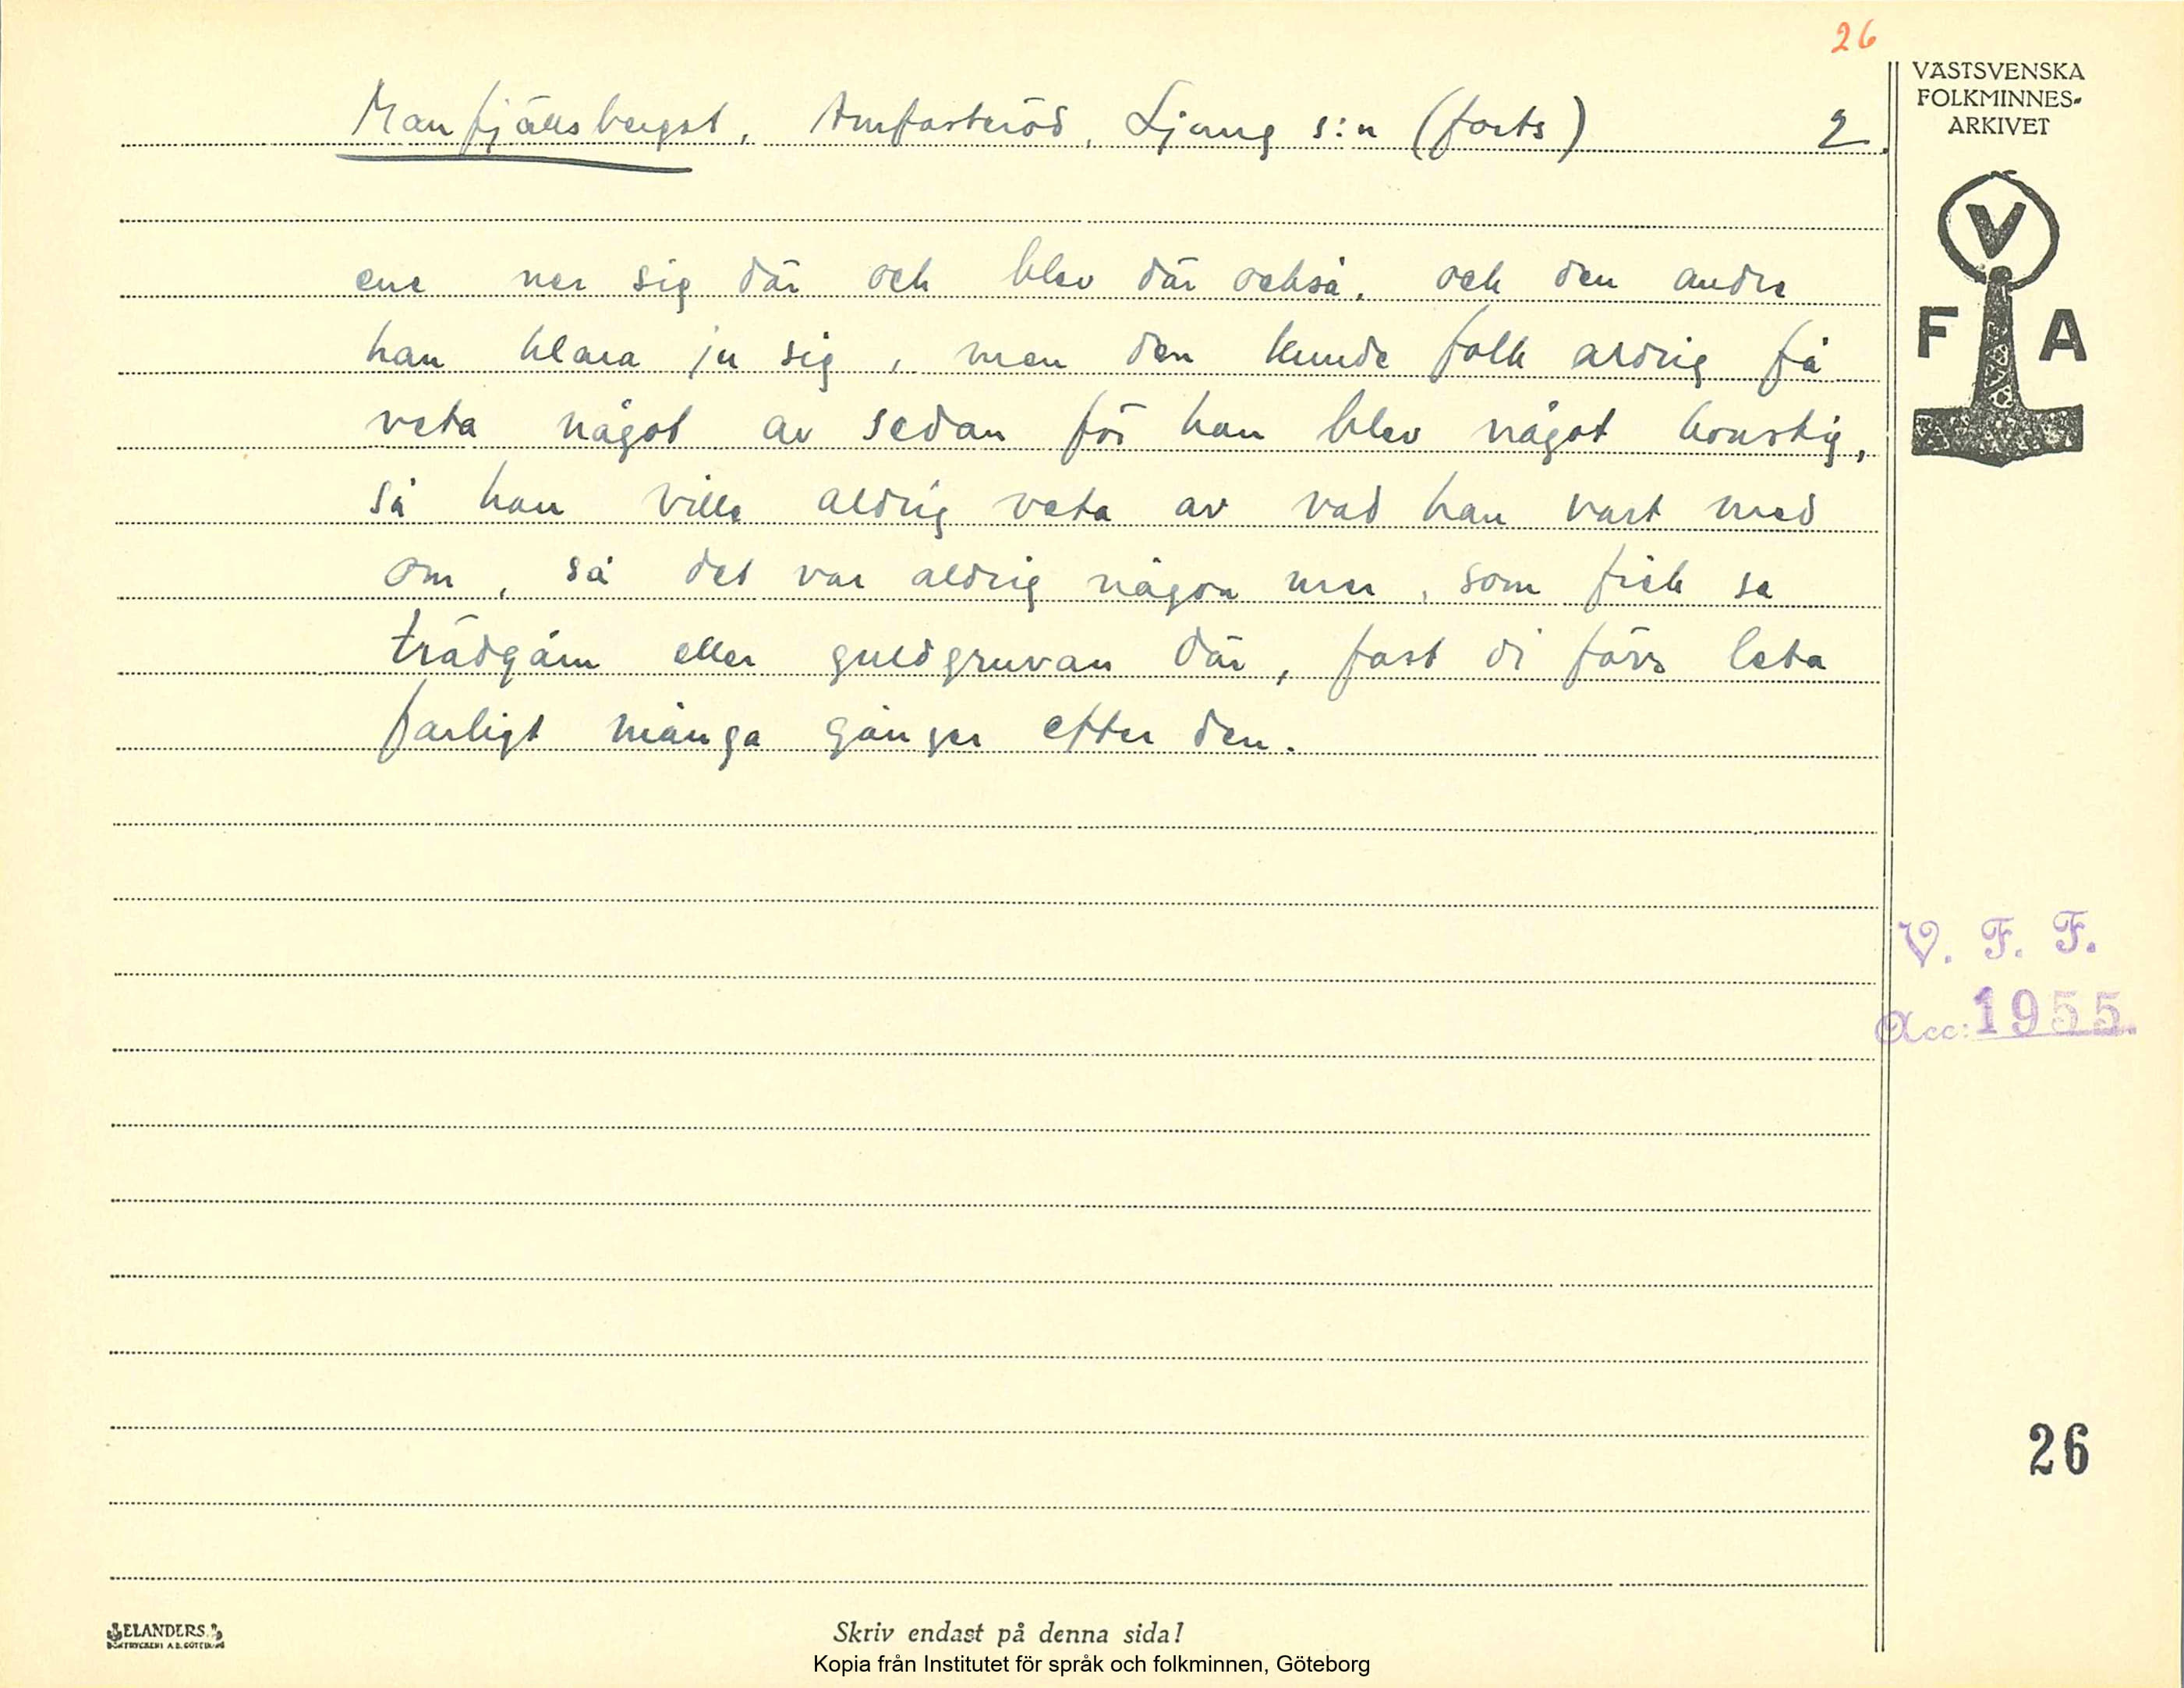 26
VÄSTSVENSKA
FOLKMINNES-
ARKIVET
Manfjällsberget, Amfasteröd, Ljung s:n (forts) 2.
V
F A
ene ner sig där och blev där också. och den andre
han klara ju sig, men den kunde folk aldrig få
veta något av sedan för han blev något konstig,
så han ville aldrig veta av vad han vart med
om, så det var aldrig någon mer, som fick se
trädgårn eller guldgruvan där, fast di förs leta
farligt många gånger efter den.
V. F. F.
Acc: 1955.
26
ELANDERS
BOKTRYCKERI A.B. GÖTEBORG
Skriv endast på denna sida!
Kopia från Institutet för språk och folkminnen, Göteborg